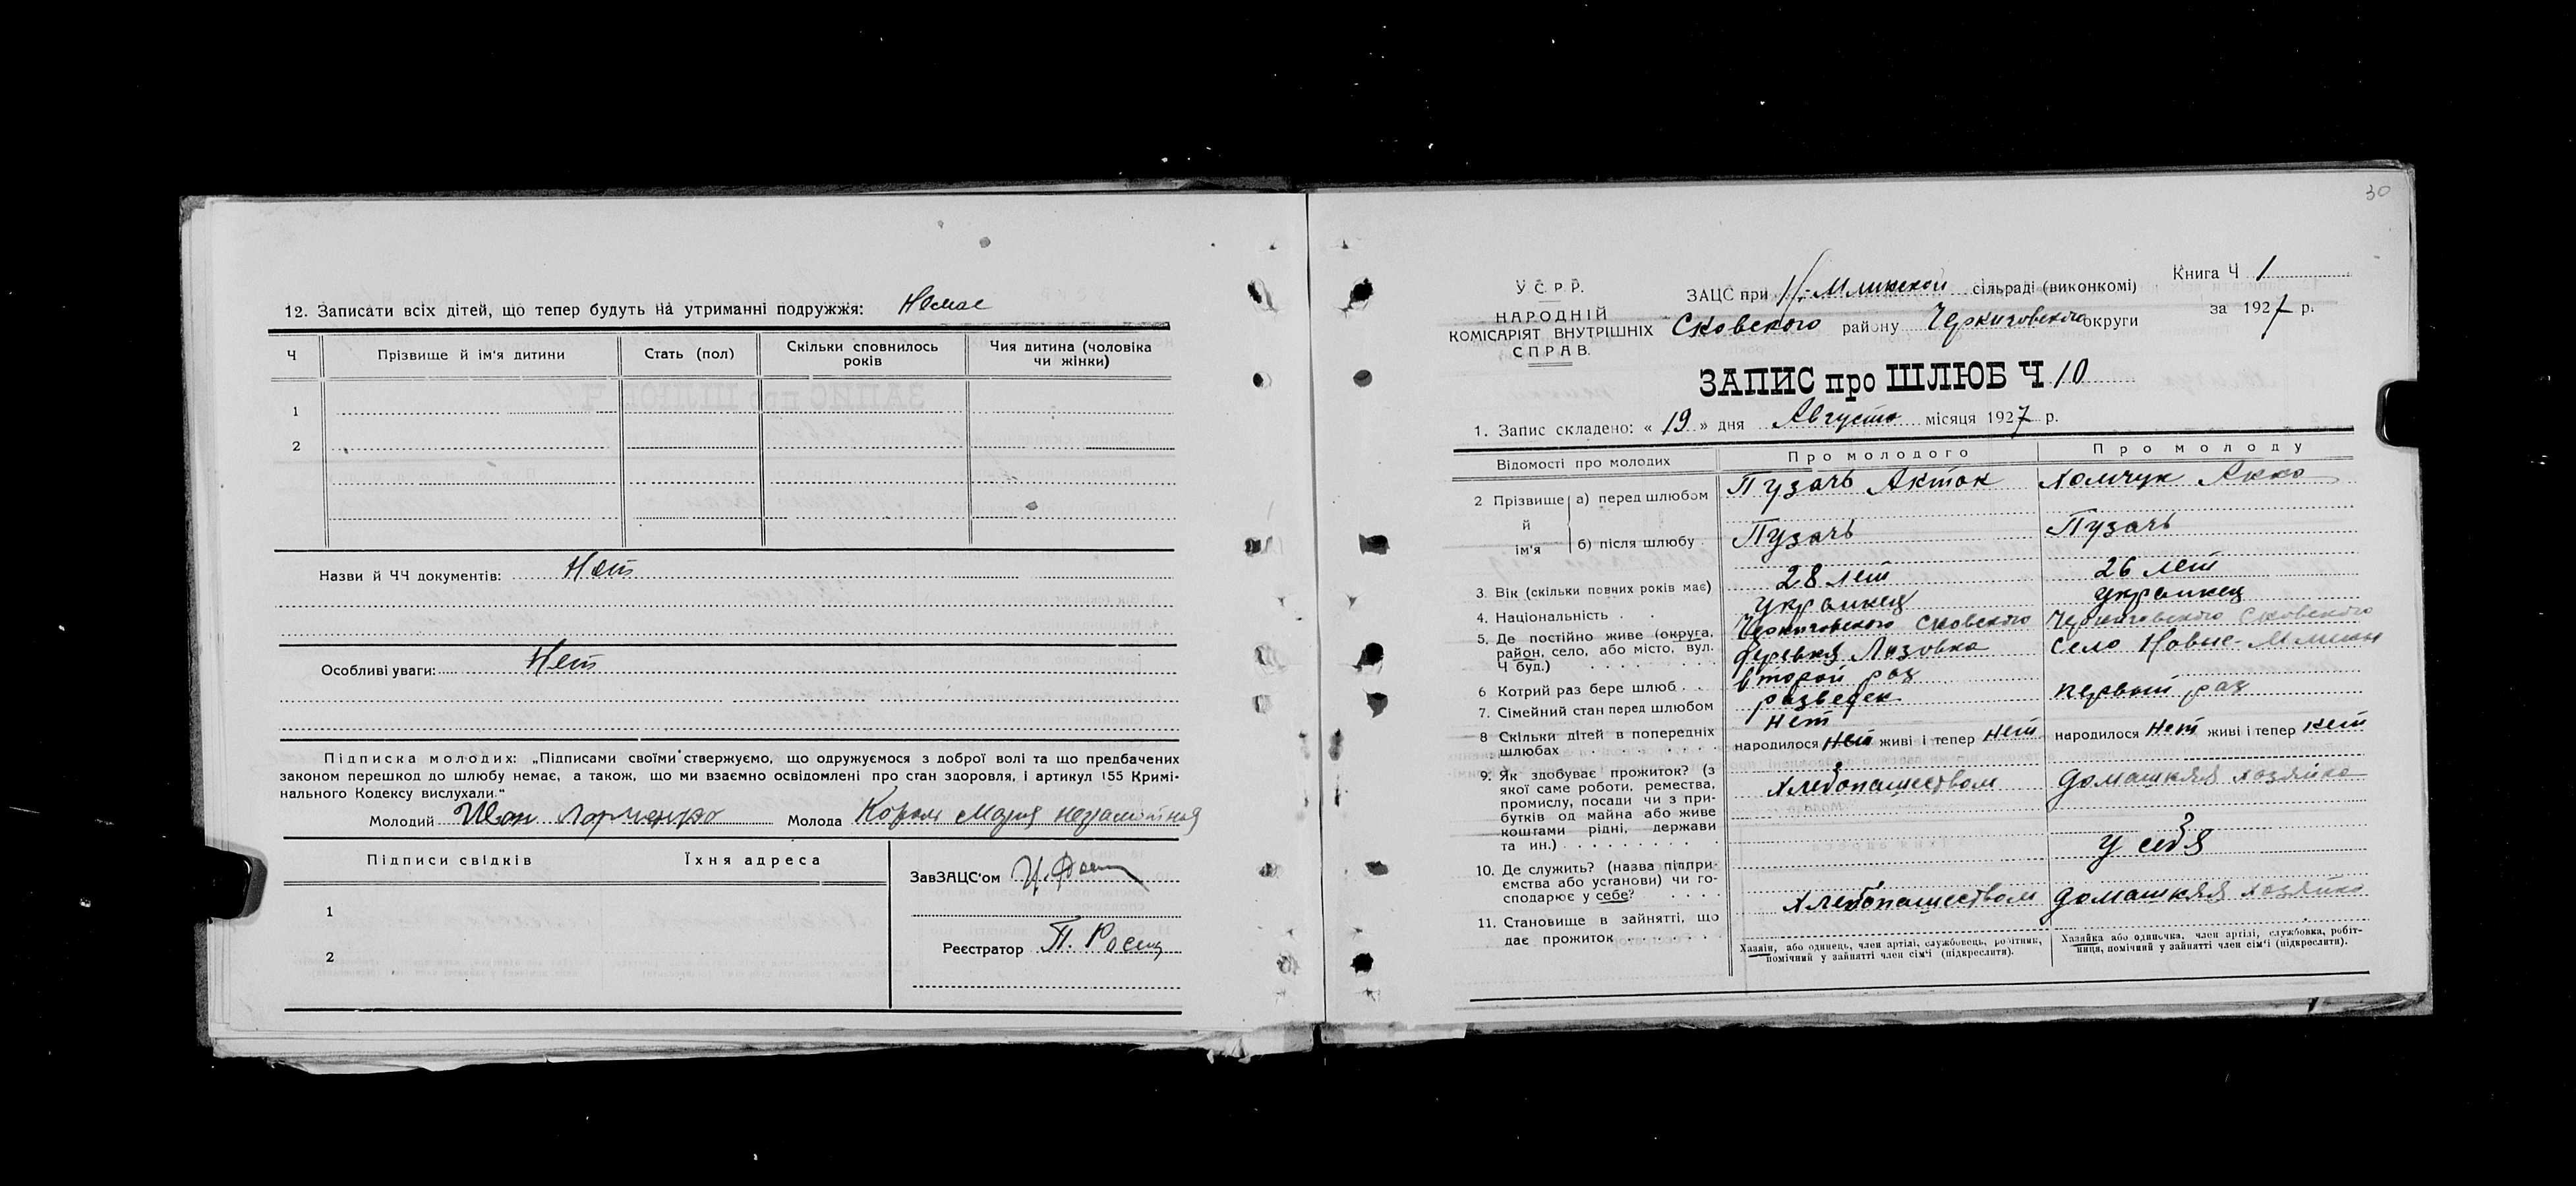 12. Записати всіх дітей, що тепер будуть на утриманні подружжя: Немає
Ч Прізвище й ім'я дитини Стать (пол) Скільки сповнилось років Чия дитина (чоловіка чи жінки)
1
2
Назви й ЧЧ документів: Нет
Особливі уваги: Нет
Підписка молодих: „Підписами своїми стверджуємо, що одружуємося з доброї волі та що предбачених
законом перешкод до шлюбу немає, а також, що ми взаємно освідомлені про стан здоровля, і артикул 155 Кримі-
нального Кодексу вислухали."
Молодий Иван Молода Мария
Підписи свідків Їхня адреса
ЗавЗАЦС'ом
1
Реєстратор П.
2
30
У. С. Р. Р.
НАРОДНІЙ
КОМІСАРІЯТ ВНУТРІШНІХ
СПРАВ.
Книга Ч 1
ЗАЦС при Н-Млинской сільраді (виконкомі)
Сновского району Черниговского округи
за 1927 р.
ЗАПИС про ШЛЮБ Ч 10
1. Запис складено: « 19 » дня Августа місяця 1927 р.
Відомості про молодих Про молодого Про молоду
2 Прізвище й ім'я а) перед шлюбом Пузачь Антон Хомчук Анна
б) після шлюбу Пузачь Пузачь
3. Вік (скільки повних років має) 28 лет 26 лет
4. Національність украинец украинец
5. Де постійно живе (округа, район, село, або місто, вул. Ч буд.) Черниговского Сновского деревня Лазовка Черниговского Сновского село Новые-Млины
6 Котрий раз бере шлюб второй раз первый раз
7. Сімейний стан перед шлюбом разведен
8 Скільки дітей в попередніх шлюбах нет народилося нет живі і тепер нет народилося нет живі і тепер нет
9. Як здобуває прожиток? (з
якої саме роботи, ремества,
промислу, посади чи з при-
бутків од майна або живе
коштами рідні, держави
та ин.) хлебопашеством домашняя хозяйка
10. Де служить? (назва підпри-
ємства або установи) чи го-
сподарює у себе? у себя
11. Становище в зайнятті, що
дає прожиток хлебопашеством домашняя хозяйка
Хазяїн, або одинець, член артілі, службовець, робітник,
помічний у зайнятті член сім'ї (підкреслити).
Хазяйка або одиночка, член артілі, службовка, робіт-
ниця, помічний у зайнятті член сім'ї (підкреслити).